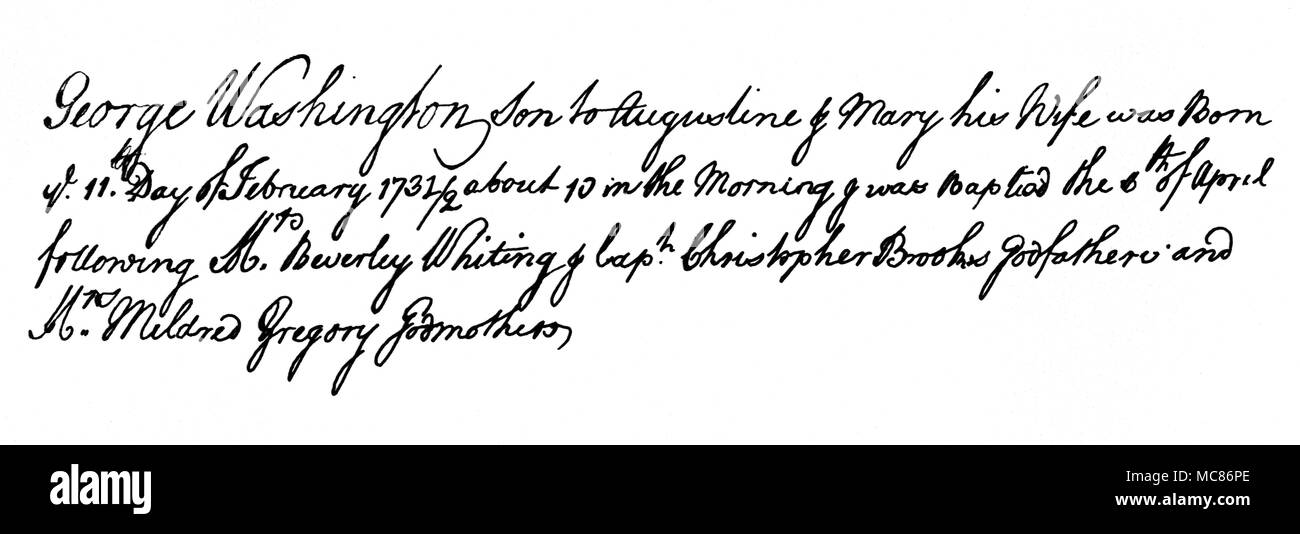 George Washington Son to Augustine & Mary his Wife was Born
yᵉ. 11.th Day of February 1731/2 about 10 in the Morning & was Baptiz'd the 5th of April
following Mrs. Beverley Whiting & Capt. Christopher Brooks Godfathers and
Mrs. Mildred Gregory Godmother
alamy
Image ID: MC86PE
www.alamy.com